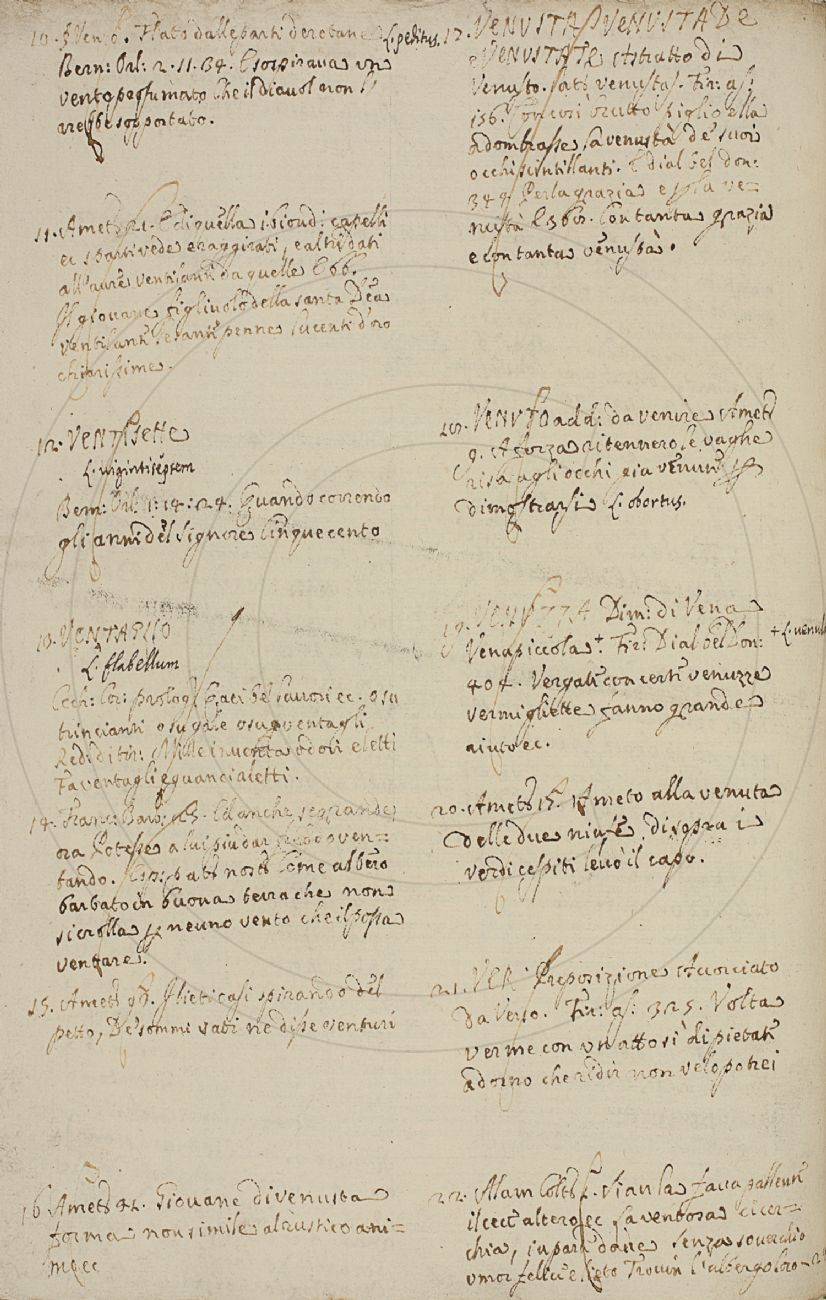 10. §Vento. Flato dalle parti deretane L. peditus.
Bern: Orl: 2. 11. 34. E sospirava un
vento profumato che il diavol non l'
arebbe sopportato.
11. Amet:
ec sparti vede e raggirati, e altri dati
all'aure ventilanti da quelle E 66.
Il giovane figliuolo della santa Dea
ventilanti le santi penne lucenti d'oro
chiarissime.
12. VENTISETTE
L. uigintiseptem
Bern: Orl: 1: 14: 24. Quando correndo
gli anni del Signore Cinquecento
13. VENTAGLIO
L. flabellum
Cecch: prolog:
trincianti o sugale o su ventagli
Red: ditir: Mille inventa odori eletti
Fa ventagli e guancialetti.
14. Franc: Barb: E anche se grande
ora Potesse a lui piu dar ven=
tando. Come albero
barbato in buona terra che non
si crolla p neuno vento che il possa
ventare.
15. Amet: Ilieti casi spirando del
petto, De' sommi vati ne disse venturi
16 Amet: 42. Giovane di venusta
forma non simile al rustico ani=
mo ec
17. VENUSTÀ, VENUSTADE
e VENUSTATE Astratto di
Venusto. Lat: venustas. Fir: as:
136. figlio ella
adombrasse la venustà de' suoi
occhi scintillanti. E dial bel don:
349. Per la grazia e p la ve=
nustà E 360. Con tanta grazia
e con tanta venustà.
18. VENUTO add: da venire Amet:
9. A forza ritennero le vaghe
risa agli occhi gia venute p
dimostrarsi L. obortus.
19. VENUZZA Dim: di Vena
Vena piccola + Fir: Dial bel Don: + L. venula
404. Vergati con certe venuzze
vermigliette fanno grande
aiuto ec.
20. Amet: 15. Ameto alla venuta
delle due ninfe, di sopra i
verdi cespiti levò il capo.
21. VER. Preposizione Accorciato
Da Verso. Fir: as: 325. Volta
ver me con un atto sì di pietate
adorno che ridir non vel potrei
22. Alam: Colt: Sian la fava
il cece altero ec la ventosa cicer=
chia, in parte dove Senza soverchio
umor felice e lieto Trovin l'albergo loro